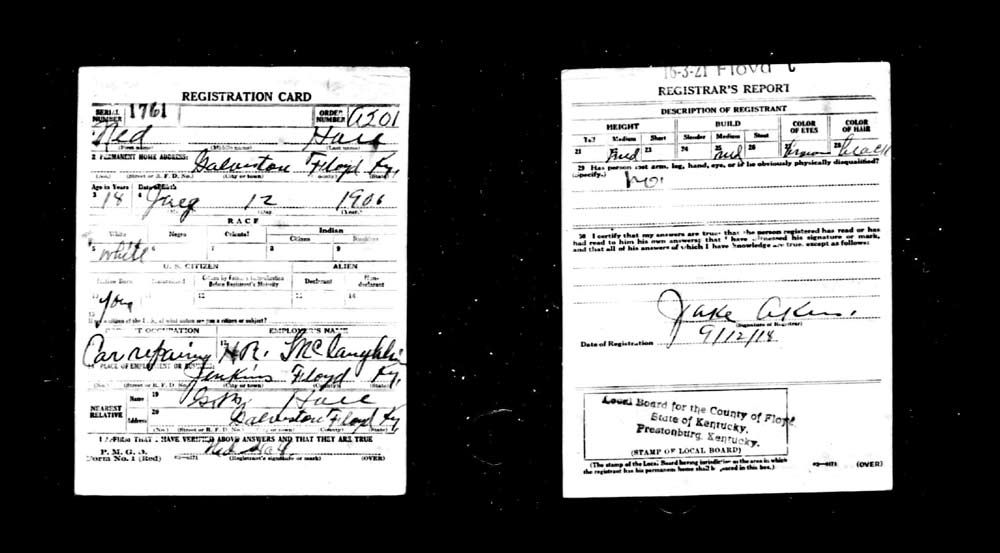 REGISTRATION CARD
SERIAL NUMBER 1761 ORDER NUMBER A201
Ned Hall
(First name) (Middle name) (Last name)
2 PERMANENT HOME ADDRESS: Galveston Floyd Ky.
(No.) (Street or R. F. D. No.) (City or town) (County) (State)
Age in Years Date of Birth
3 18 4 Aug 12 1900
(Day) (Year)
RACE
White Negro Oriental Indian
Citizen Noncitizen
5 White 6 7 8 9
U. S. CITIZEN ALIEN
Native Born Naturalized Citizen by Father's Naturalization Before Registrant's Majority Declarant Non-declarant
Yes 12 13 14
15 If not a citizen of the U. S., of what nation are you a citizen or subject?
PRESENT OCCUPATION EMPLOYER'S NAME
Car repairing H.R. McLaughlin
PLACE OF EMPLOYMENT OR BUSINESS:
Jenkins Floyd Ky.
(No.) (Street or R. F. D. No.) (City or town) (County) (State)
NEAREST RELATIVE
Name 19 Hall
Address 20 Galveston Floyd Ky
(No.) (Street or R. F. D. No.) (City or town) (County) (State)
I AFFIRM THAT I HAVE VERIFIED ABOVE ANSWERS AND THAT THEY ARE TRUE
P. M. G. O.
Form No. 1 (Red) 03—6171 Ned Hall (Registrant's signature or mark) (OVER)
16-3-21 Floyd C
REGISTRAR'S REPORT
DESCRIPTION OF REGISTRANT
HEIGHT BUILD COLOR OF EYES COLOR OF HAIR
Tall Medium Short Slender Medium Stout
21 22 Med 23 24 25 med 26 27 Brown 28 black
29 Has person lost arm, leg, hand, eye, or is he obviously physically disqualified?
(Specify.) no.
30 I certify that my answers are true; that the person registered has read or has
had read to him his own answers; that I have witnessed his signature or mark,
and that all of his answers of which I have knowledge are true, except as follows:
Jake Akers.
(Signature of Registrar)
Date of Registration 9/12/18
Local Board for the County of Floyd
State of Kentucky.
Prestonburg, Kentucky.
(STAMP OF LOCAL BOARD)
(The stamp of the Local Board having jurisdiction of the area in which
the registrant has his permanent home shall be placed in this box.) 03—6171 (OVER)